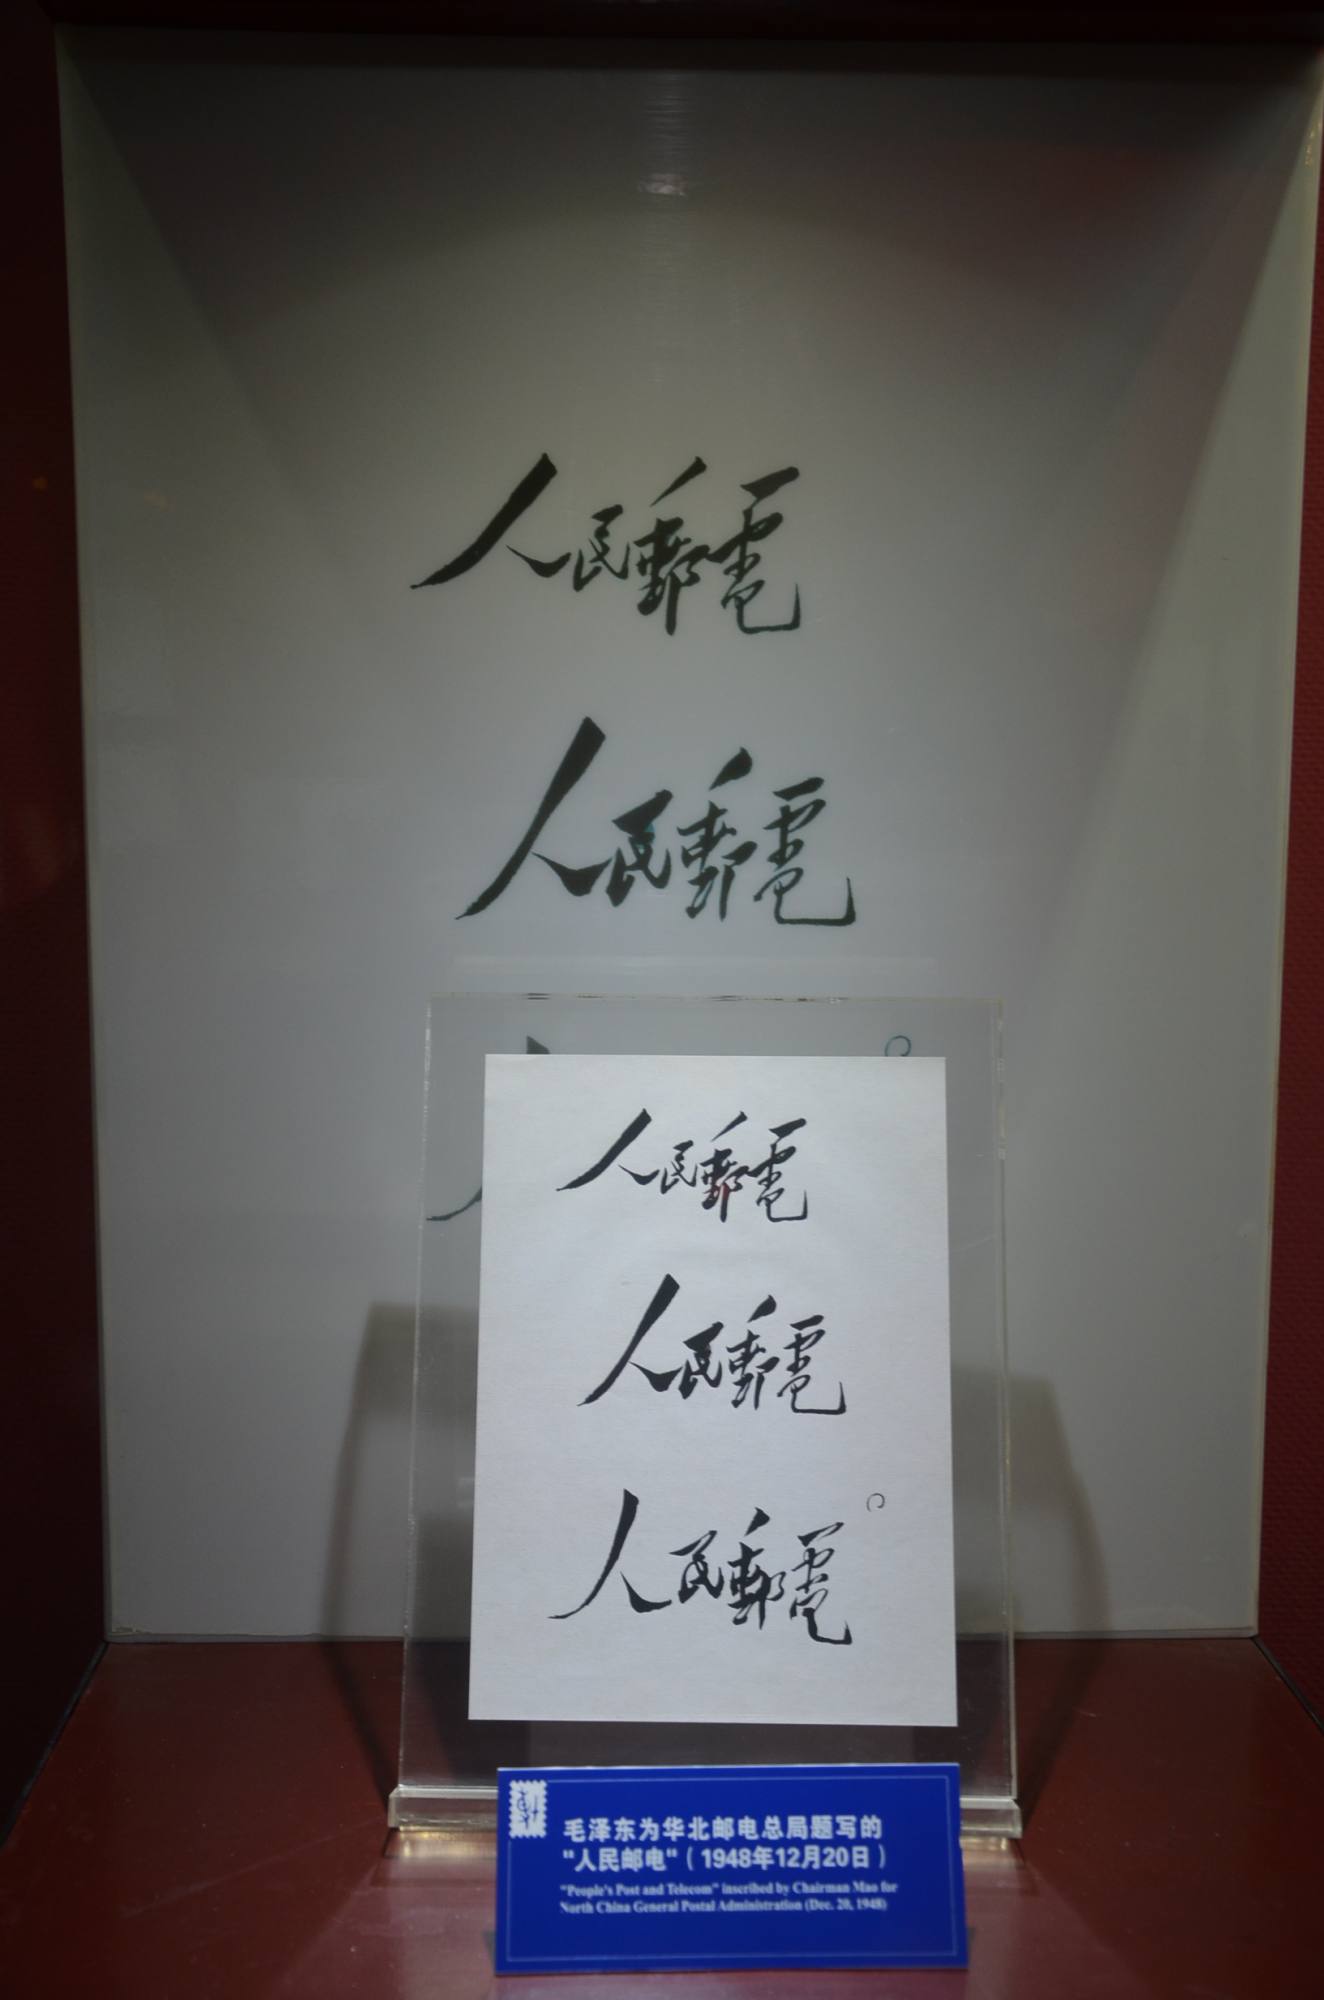 人民郵電
人民郵電
人民郵電
人民郵電
人民郵電
毛泽东为华北邮电总局题写的
“人民邮电”（1948年12月20日）
"People's Post and Telecom" inscribed by Chairman Mao for
North China General Postal Administration (Dec. 20, 1948)